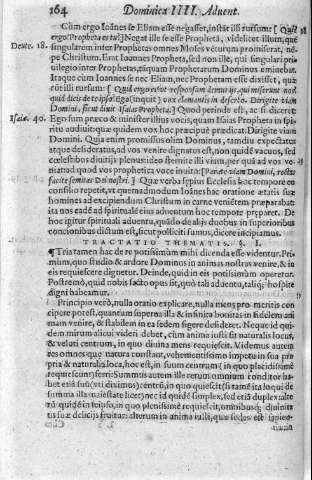 164 Dominica IIII. Aduent.
Cùm ergo Ioānes se Eliam esse negasset, instāt illi rursum: [Quid
ergo? Propheta es tu?] Negat ille se esse Prophetā, videlicet illum, quē
Deute. 18. singularem inter Prophetas omnes Moses vēturum promiserat, nē-
pe Christum. Erat Ioannes Propheta, sed non ille, qui singulari pri-
uilegio inter Prophetas, tāquam Prophetarum Dominus eminebat.
Itaque cùm Ioannes se nec Eliam, nec Prophetam esse dixisset, quæ
rūt illi rursum: [Quid ergo es? vt responsum demus ijs, qui miserunt nos?
quid dicis de teipso? Ego (inquit) vox clamantis in deserto. Dirigite viam
Domini, sicut dixit Isaias Propheta.] Quod perinde est, ac si diceret:
Isaiæ. 40. Ego sum præco & minister illius vocis, quam Isaias Propheta in spi-
ritu audiuit: quæ quidem vox hoc præcipuè prædicat. Dirigite viam
Domini. Quia enim promissus olim Dominus, tamdiu expectatus
atque desideratus, ad vos venire dignatus est, non quidē vacuus, sed
cælestibus diuitijs plenus: ideo sternite illi viam, per quā ad vos ve-
niat: ad quod vos prophetica voce inuito: [Parate viam Domini, rectas
facite semitas Dei nostri.] Quæ verba sæpius Ecclesia hoc tempore eo
consilio repetit, vt quemadmodum Ioānes hac oratione ætatis suæ
homines ad excipiendum Christum in carne veniētem præparabat:
ita nos eadē ad spirituālē eius aduentum hoc tempore præparet. De
hoc igitur spirituali aduentu, quādo de alijs duobus in superioribus
concionibus dictum est, sicut polliciti sumus, dicere incipiamus.
TRACTATIO THEMATIS. §. I.
¶ Tria tamen hac de re potissimùm mihi dicenda esse videntur. Pri-
mum, quo studio & ardore Dominus in animas nostras venire, & in
eis requiescere dignetur. Deinde, quid in eis potissimùm operetur.
Postremò, quid nobis facto opus sit, quò tali aduentu, taliq; hospite
digni habeamur.
Principio verò, nulla oratio explicare, nulla mens pro meritis con
cipere potest, quantùm superna illa & infinita bonitas in fidelem ani
mam venire, & stabilem in ea sedem figere desideret. Neque id qui-
dem mirum alicui videri debet, cùm animæ iusti sit naturalis locus,
& veluti centrum, in quo diuina mens requiescit. Videmus autem
res omnes quæ natura constant, vehementissimo impetu in sua pro
pria & naturalia loca, hoc est, in suum centrum (in quo placidissimè
requiescunt) ferri: Summus autem ille rerum omnium conditor ha-
bet etiā suū (vti diximus) centrū, in quo quiescit (si tamē ita loqui de
summa illa maiestate licet) nec id quidē simplex, sed etiā duplex: alte
rū quidē in seipso, in quo plenissimè requiescit, omnibusq; diuinita
tis suæ delicijs fruitur: alterum in anima iusti, quæ sedes est sapien-